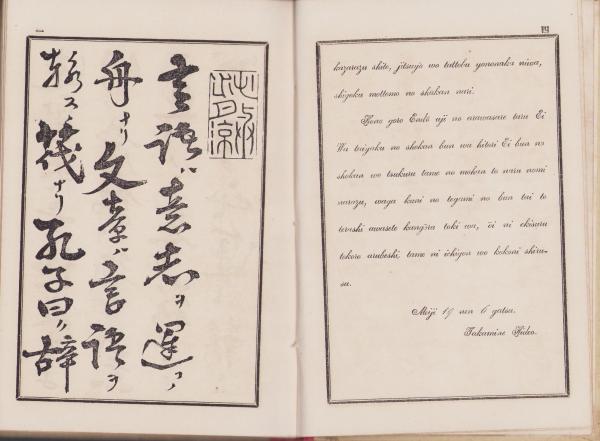 言語ハ意志ヲ運フノ
舟ナリ文章ハ言語ヲ
ナリ孔子曰ク辞
四
kazarazu shite, jitsuyō wo tattobu yononaka niwa,
shigoku mottomo no shokan nari.
Kono goro Endō uji no arawasare taru Ei
Wa taiyaku no shokan bun wa hitori Ei bun no
shokan wo tsukuru tame no mohan to naru nomi
narazu, waga kuni no togami no bun tai to
terashi awasete kangōru toki wa, ōi ni ekisuru
tokoro arubeshi, tame ni ichigon wo kokoni shiru-
su.
Meiji 19 nen 6 gatsu.
Takamine Hideo.